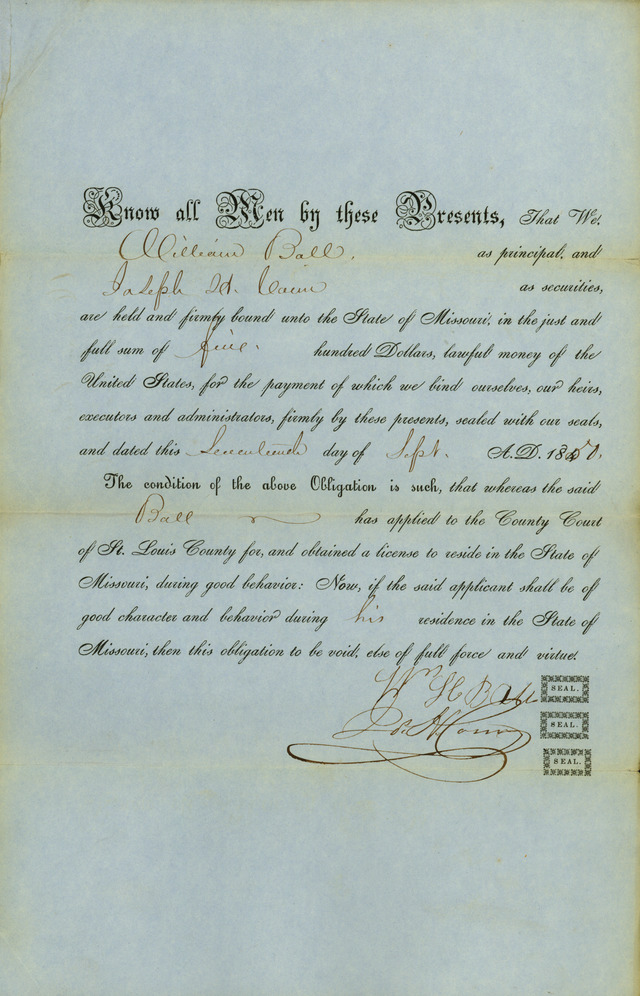 Know all Men by these Presents, That We,
William Ball, as principal, and
Joseph H. as securities,
are held and firmly bound unto the State of Missouri, in the just and
full sum of five hundred Dollars, lawful money of the
United States, for the payment of which we bind ourselves, our heirs,
executors and administrators, firmly by these presents, sealed with our seals,
and dated this Seventeenth day of Sept. A.D. 18
The condition of the above Obligation is such, that whereas the said
Ball has applied to the County Court
of St. Louis County for, and obtained a license to reside in the State of
Missouri, during good behavior: Now, if the said applicant shall be of
good character and behavior during his residence in the State of
Missouri, then this obligation to be void, else of full force and virtue.
Wm H Ball SEAL.
Jos. H. SEAL.
SEAL.